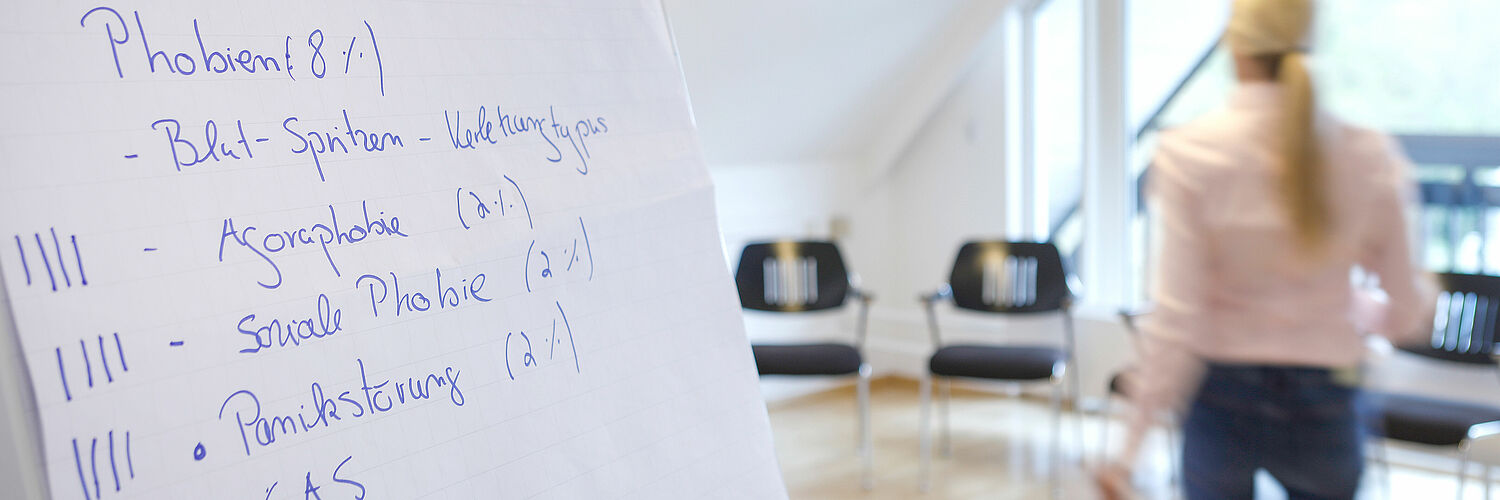 Phobien (8 %)
- Blut- Spritzen - Verletzungstypus
|||| - Agoraphobie (2 %)
|||| - Soziale Phobie (2 %)
|||| • Panikstörung (2 %)
AS